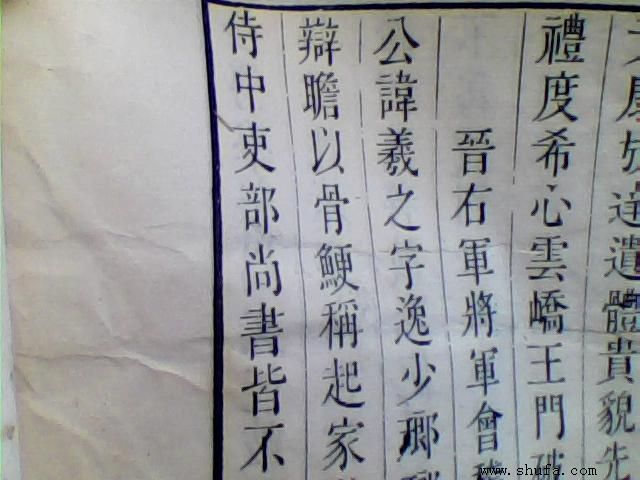 遺體貴貌先
禮度希心雲嶠王門
晉右軍將軍會
公諱羲之字逸少瑯
辯瞻以骨鯁稱起家
侍中吏部尚書皆不
www.shufa.com